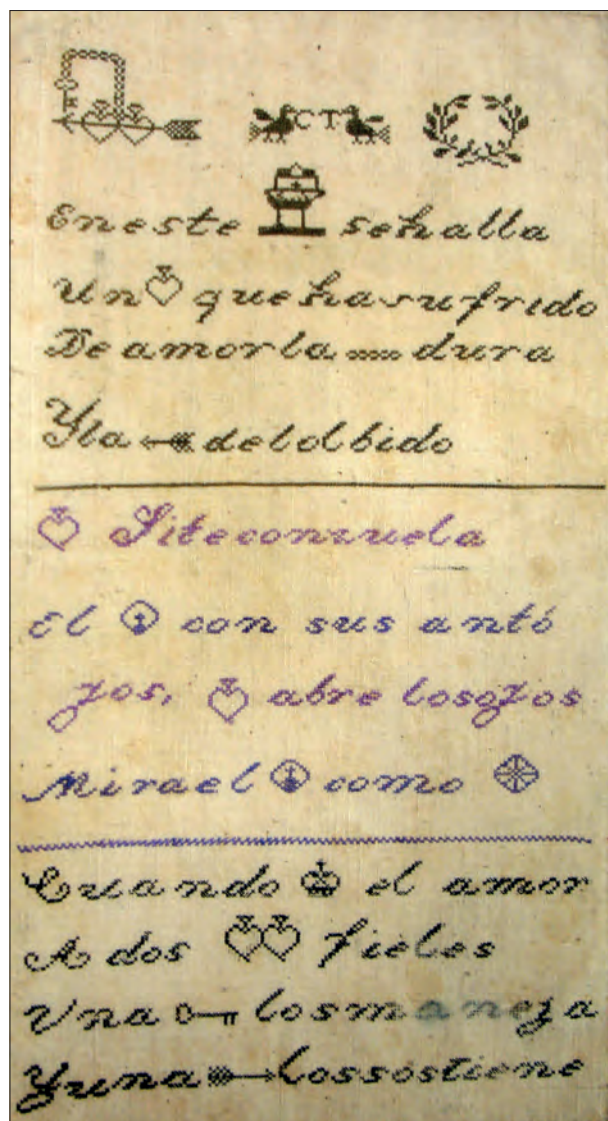 CT
En este se halla
Un que ha sufrido
De amor la dura
Y la del olbido
Si te conzuela
El con sus antó
jos, abre los ojos
Mira el como
Cuando el amor
A dos fieles
Una los maneja
Y una los sostiene